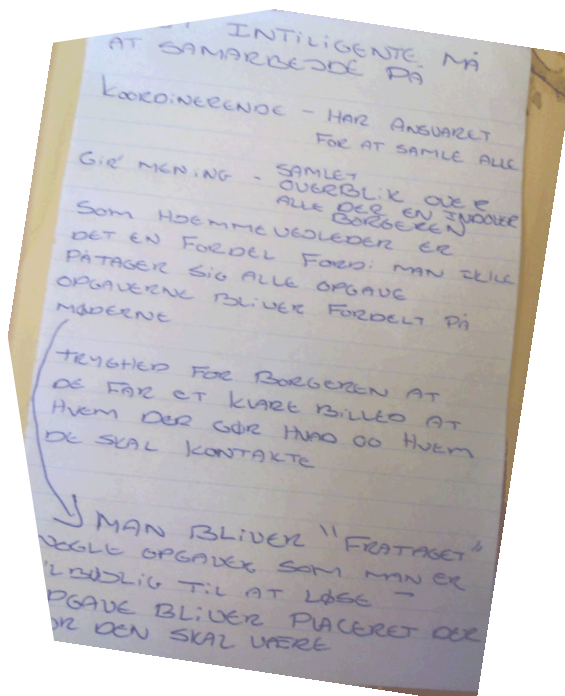 INTILIGENTE MÅ
AT SAMARBEJDE PÅ
KOORDINERENDE - HAR ANSVARET
FOR AT SAMLE ALLE
GIR' MENING - SAMLET
OVERBLIK OVER
ALLE DER EN INDOVER
BORGEREN
SOM HJEMMEVEJLEDER ER
DET EN FORDEL FORDI MAN IKKE
PÅTAGER SIG ALLE OPGAVE
OPGAVERNE BLIVER FORDELT PÅ
MØDERNE
TRYGHED FOR BORGEREN AT
DE FÅR ET KLARE BILLED AT
HVEM DER GØR HVAD OG HVEM
DE SKAL KONTAKTE
MAN BLIVER "FRATAGET"
NOGLE OPGAVER SOM MAN ER
TIL AT LØSE -
OPGAVE BLIVER PLACERET DER
DEN SKAL VÆRE